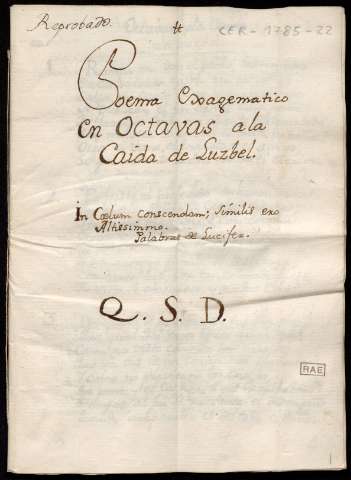 Reprobado.
CER-1785-22
Poema Exagematico
En Octavas a la
Caida de Luzbel.
In Cœlum Conscendam; Similis ero
Altissimmo.
Palabras de Lucifer.
Q. S. D.
RAE
1